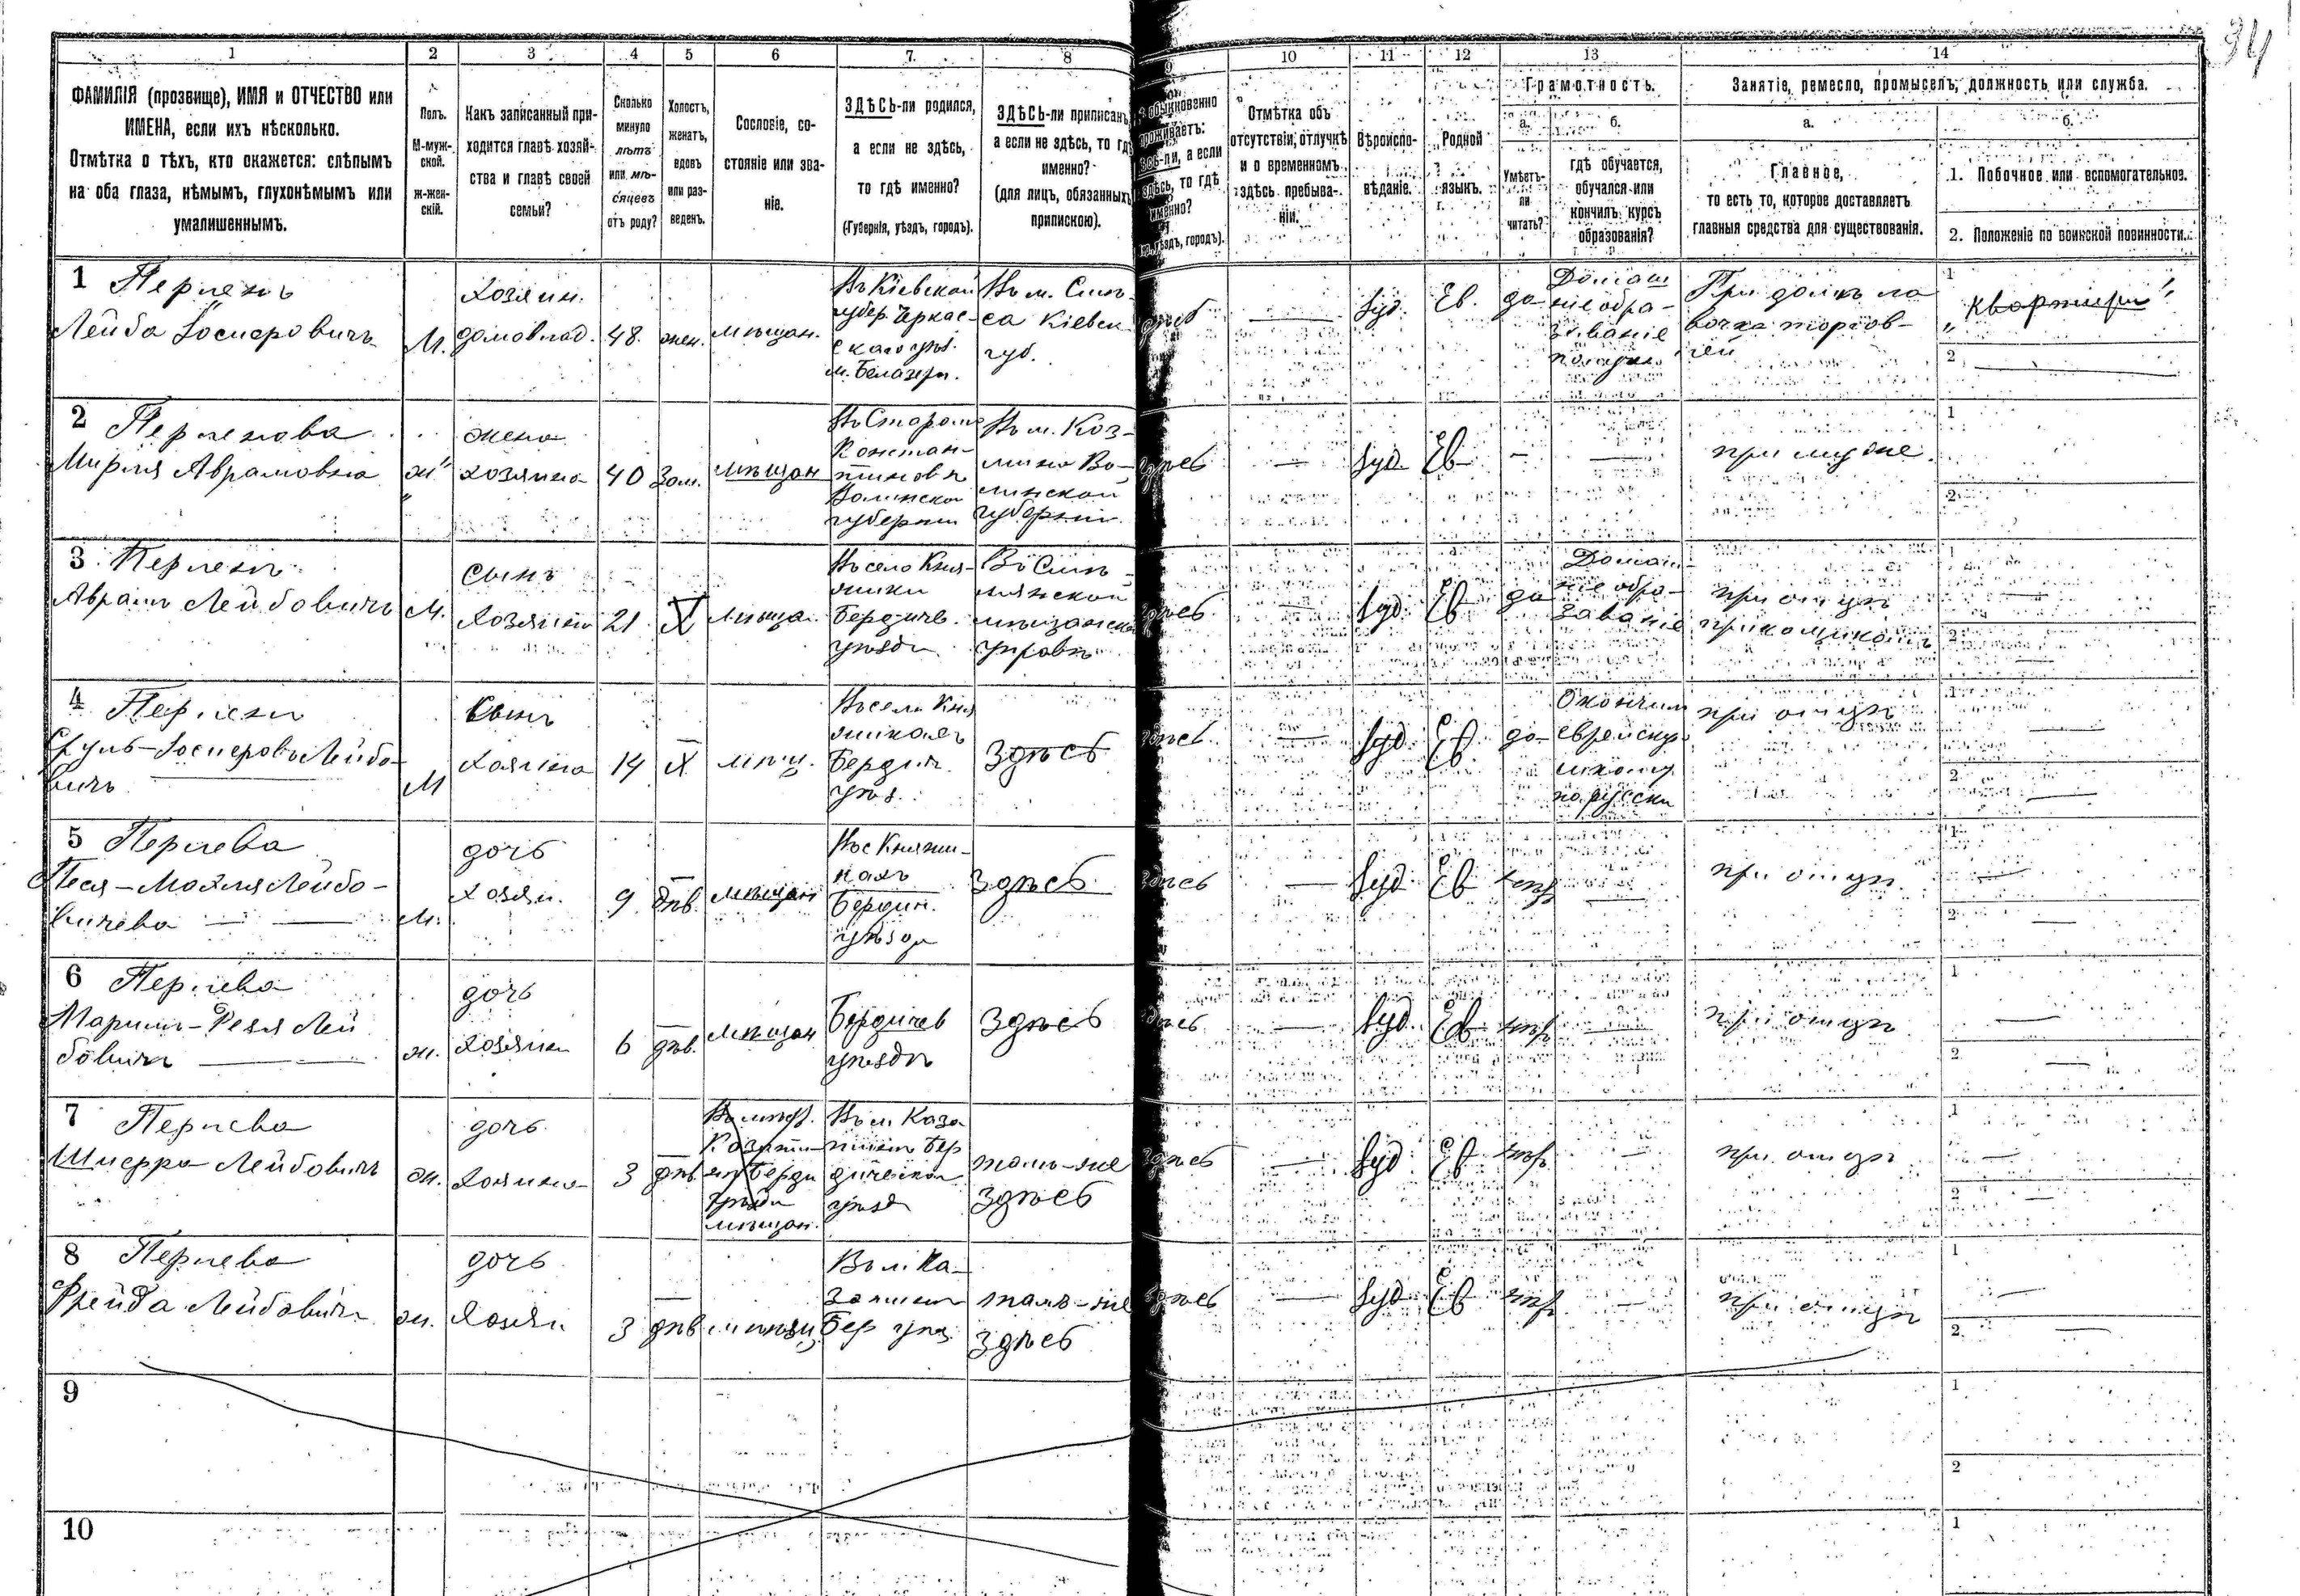 34
1 2 3 4 5 6 7 8 9 10 11 12 13 14
ФАМИЛІЯ (прозвище), ИМЯ и ОТЧЕСТВО или
ИМЕНА, если ихъ нѣсколько.
Отмѣтка о тѣхъ, кто окажется: слѣпымъ
на оба глаза, нѣмымъ, глухонѣмымъ или
умалишеннымъ.
Полъ.
М-муж-
ской.
Ж-жен-
скій.
Какъ записанный при-
ходится главѣ хозяй-
ства и главѣ своей
семьи?
Сколько
минуло
лѣтъ
или мѣ-
сяцевъ
отъ роду?
Холостъ,
женатъ,
вдовъ
или раз-
веденъ.
Сословіе, со-
стояніе или зва-
ніе.
ЗДѢСЬ-ли родился,
а если не здѣсь,
то гдѣ именно?
(Губернія, уѣздъ, городъ).
ЗДѢСЬ-ли приписанъ,
а если не здѣсь, то гдѣ
именно?
(для лицъ, обязанныхъ
припискою).
обыкновенно
проживаетъ:
а если
здѣсь, то гдѣ
именно?
уѣздъ, городъ).
Отмѣтка объ
отсутствіи, отлучкѣ
и о временномъ
здѣсь пребыва-
ніи.
Вѣроиспо-
вѣданіе.
Родной
языкъ.
Грамотность.
а.
Умѣетъ-
ли
читать?
б.
гдѣ обучается,
обучался или
кончилъ курсъ
образованія?
Занятіе, ремесло, промыселъ, должность или служба.
а.
Главное,
то есть то, которое доставляетъ
главныя средства для существованія.
б.
1. Побочное или вспомогательное.
2. Положеніе по воинской повинности.
1 Перленъ
Лейба Іосперовичъ
М.
Хозяин.
домовлад.
48.
жен.
мѣщан.
Въ Кіевской
губер. Черкас-
скаго уѣз.
м. Белазеры.
Кіевск
губ.
Іуд.
Ев.
да
Домаш
ніе обра-
зованіе
При домѣ ла
вочка торгов-
лей
1
"квартиры"
2
2 Перленова
Мирля Аврамовна
ж
жена
хозяина
40
Зам.
мѣщан
Въ Старом
Констан-
тиновѣ
Волинской
губерніи
Въ м. Коз-
лино Во-
линской
губерніи
здѣсь
Іуд.
Ев
при мужѣ.
1
2
3 Перленъ
Аврамъ Лейбовичъ
М.
Сынъ
Хозяина
21
Х
мѣща.
Въ село Кня-
жики
Бердичев.
уѣзда
мѣщанской
управѣ
здѣсь
Іуд.
Ев
да
Домаш-
ніе обра-
зованіе
при отцѣ
прикащикомъ
1
2
4 Перлен
Сруль-Іосперовъ Лейбо-
вичъ
М
Сынъ
Хозяина
14
Х
мѣщ.
Бердич.
уѣз.
здѣсь
здѣсь
Іуд.
Ев
да
Окончил
еврейскую
школу
по русски
при отцѣ
1
2
5 Перлева
Песя-Махля Лейбо-
вичева
М.
дочь
хозяи.
9
дѣв.
мѣщан
Бердич.
уѣзда
здѣсь
здѣсь
Іуд.
Ев
при отцѣ
1
2
6 Перлева
Мариям-Рейзя Лей
бовичъ
ж.
дочь
хозяина
6
дѣв.
мѣщан
Бердичев
уѣздѣ
здѣсь
здѣсь
Іуд.
Ев
при отцѣ
1
2
7 Перлева
Шпера Лейбовичъ
ж.
дочь
хозяина
3
дѣв.
мѣщан.
Въ м. Каза
тинѣ Бер
дичевскаго
уѣзда
тамъ-же
здѣсь
здѣсь
Іуд.
Ев
при отцѣ
1
2
8 Перлева
Фрейда Лейбовичъ
ж.
дочь
хозяи
3
дѣв
мѣщ
Въ м. Ка-
затинѣ
Бер уѣз
тамъ-же
здѣсь
здѣсь
Іуд.
Ев
при отцѣ
1
2
9
1
2
10
1